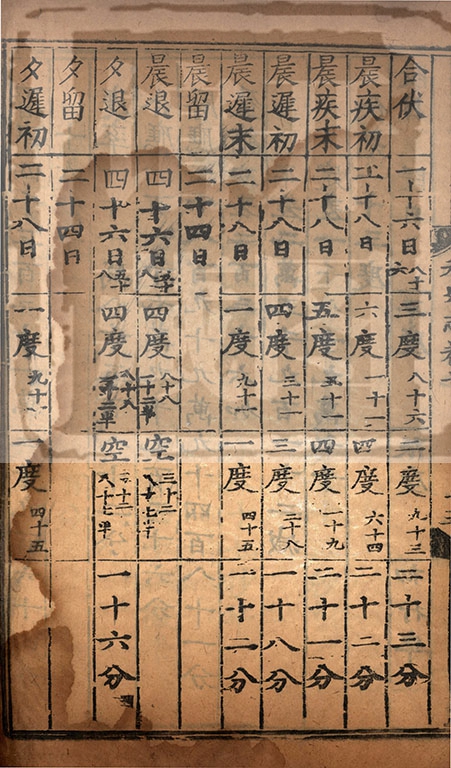 合伏 一十六日八十六 三度八十六 二度九十三 二十三分
晨疾初 二十八日 六度一十一 四度六十四 二十二分
晨疾末 二十八日 五度五十一 四度一十九 二十一分
晨遲初 二十八日 四度三十一 三度二十八 一十八分
晨遲末 二十八日 一度九十一 一度四十五 二十二分
晨留 二十四日
晨退 四十六日五十八 四度八十八一十二半 空三十二八十七半
夕退 四十六日五十八 四度八十八一十二半 空三十二八十七半 一十六分
夕留 二十四日
夕遲初 二十八日 一度九十一 一度四十五